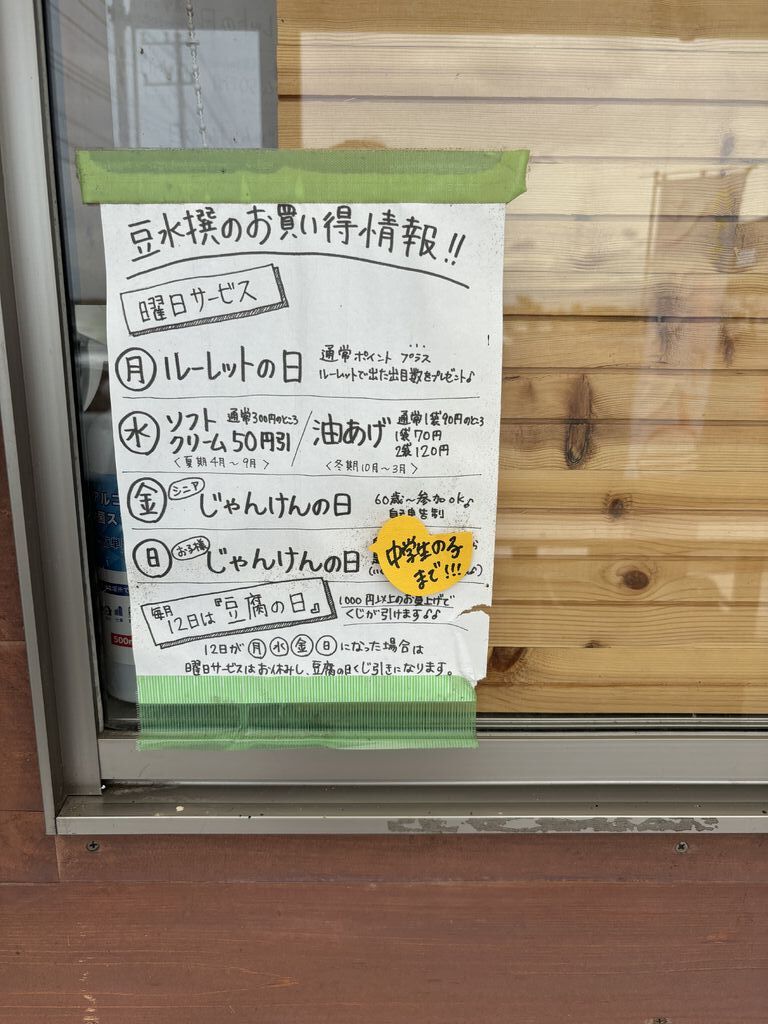 豆水撰のお買い得情報!!
曜日サービス
月 ルーレットの日 通常ポイント プラス
ルーレットで出た出目数をプレゼント♪
水 ソフトクリーム 通常300円のところ 50円引
〈夏期4月～9月〉
油あげ 通常1袋90円のところ
1袋70円
2袋120円
〈冬期10月～3月〉
金 シニア じゃんけんの日 60歳～参加ok♪
自己申告制
日 お子様 じゃんけんの日
中学生の子
まで!!!
毎月
12日は『豆腐の日』 1000円以上のお買上げで
くじが引けます♪♪
12日が月水金日になった場合は
曜日サービスはお休みし、豆腐の日くじ引きになります。